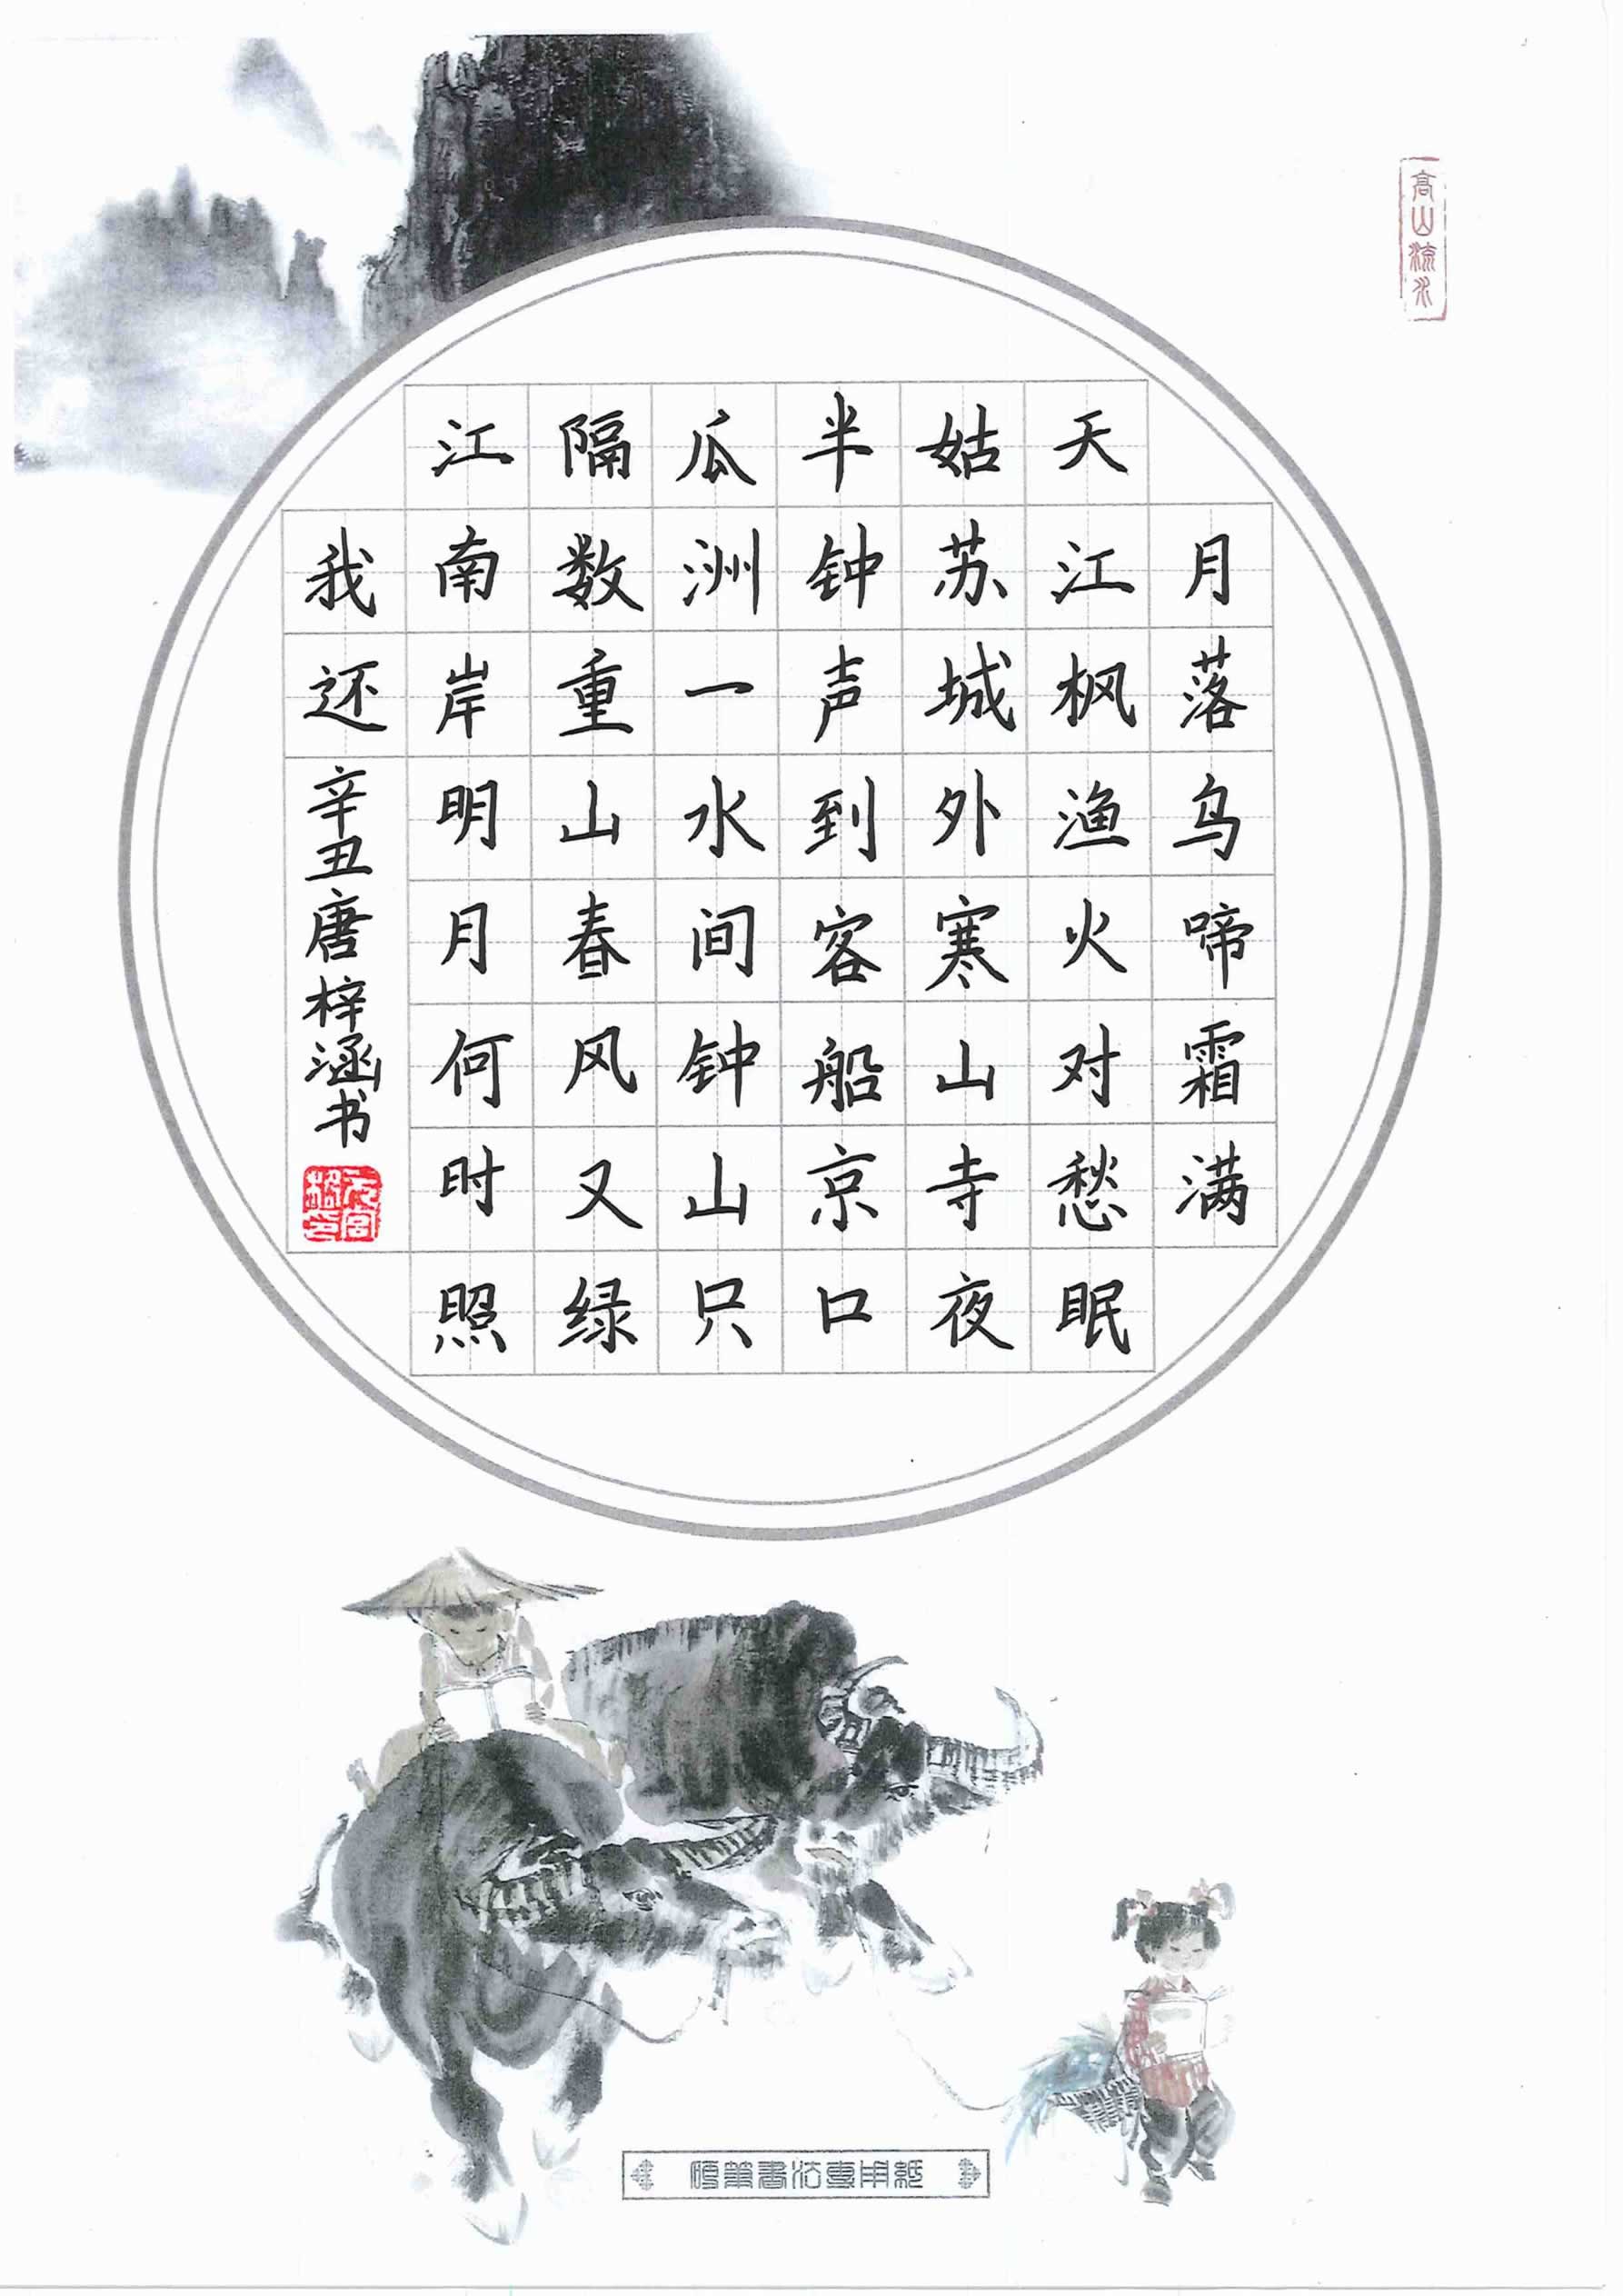 月落乌啼霜满
天江枫渔火对愁眠
姑苏城外寒山寺夜
半钟声到客船京口
瓜洲一水间钟山只
隔数重山春风又绿
江南岸明月何时照
我还
辛丑唐梓涵书
高山流水
硬筆書法專用紙